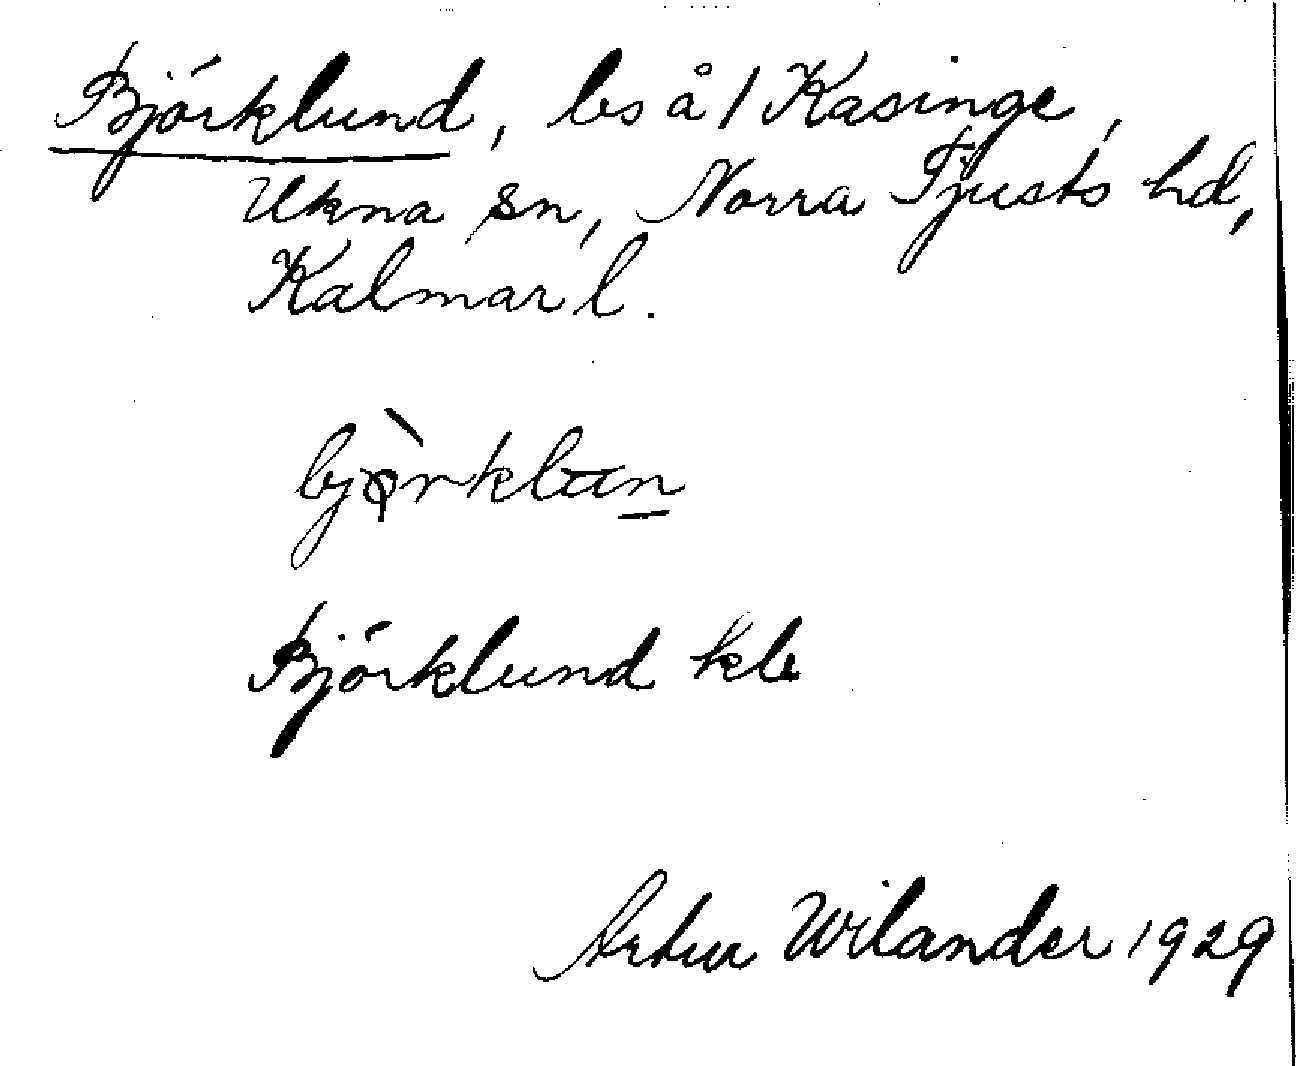 Björklund, ls å 1 Kasinge,
Ukna sn, Norra Tjusts hd,
Kalmar l.
Björklund kb
Artur Wilander 1929